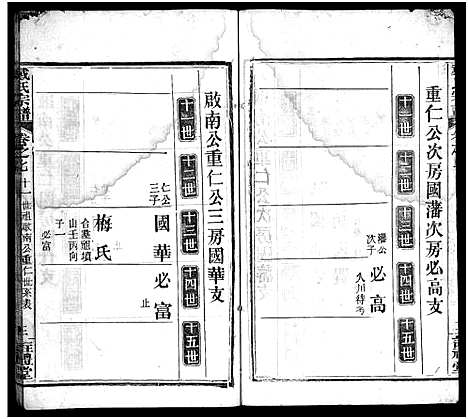 重仁公次房國藩次房必高支
十一世
十二世
十三世
十四世
十五世
藩公
次子
必高
久川待考
啟南公重仁公三房國華支
十一世
十二世
十三世
十四世
十五世
仁公
三子
國華
必富
止
梅氏
合葬
山壬丙向
子一
必富
氏宗譜
卷之七
十一世祖啟南公重仁世系表